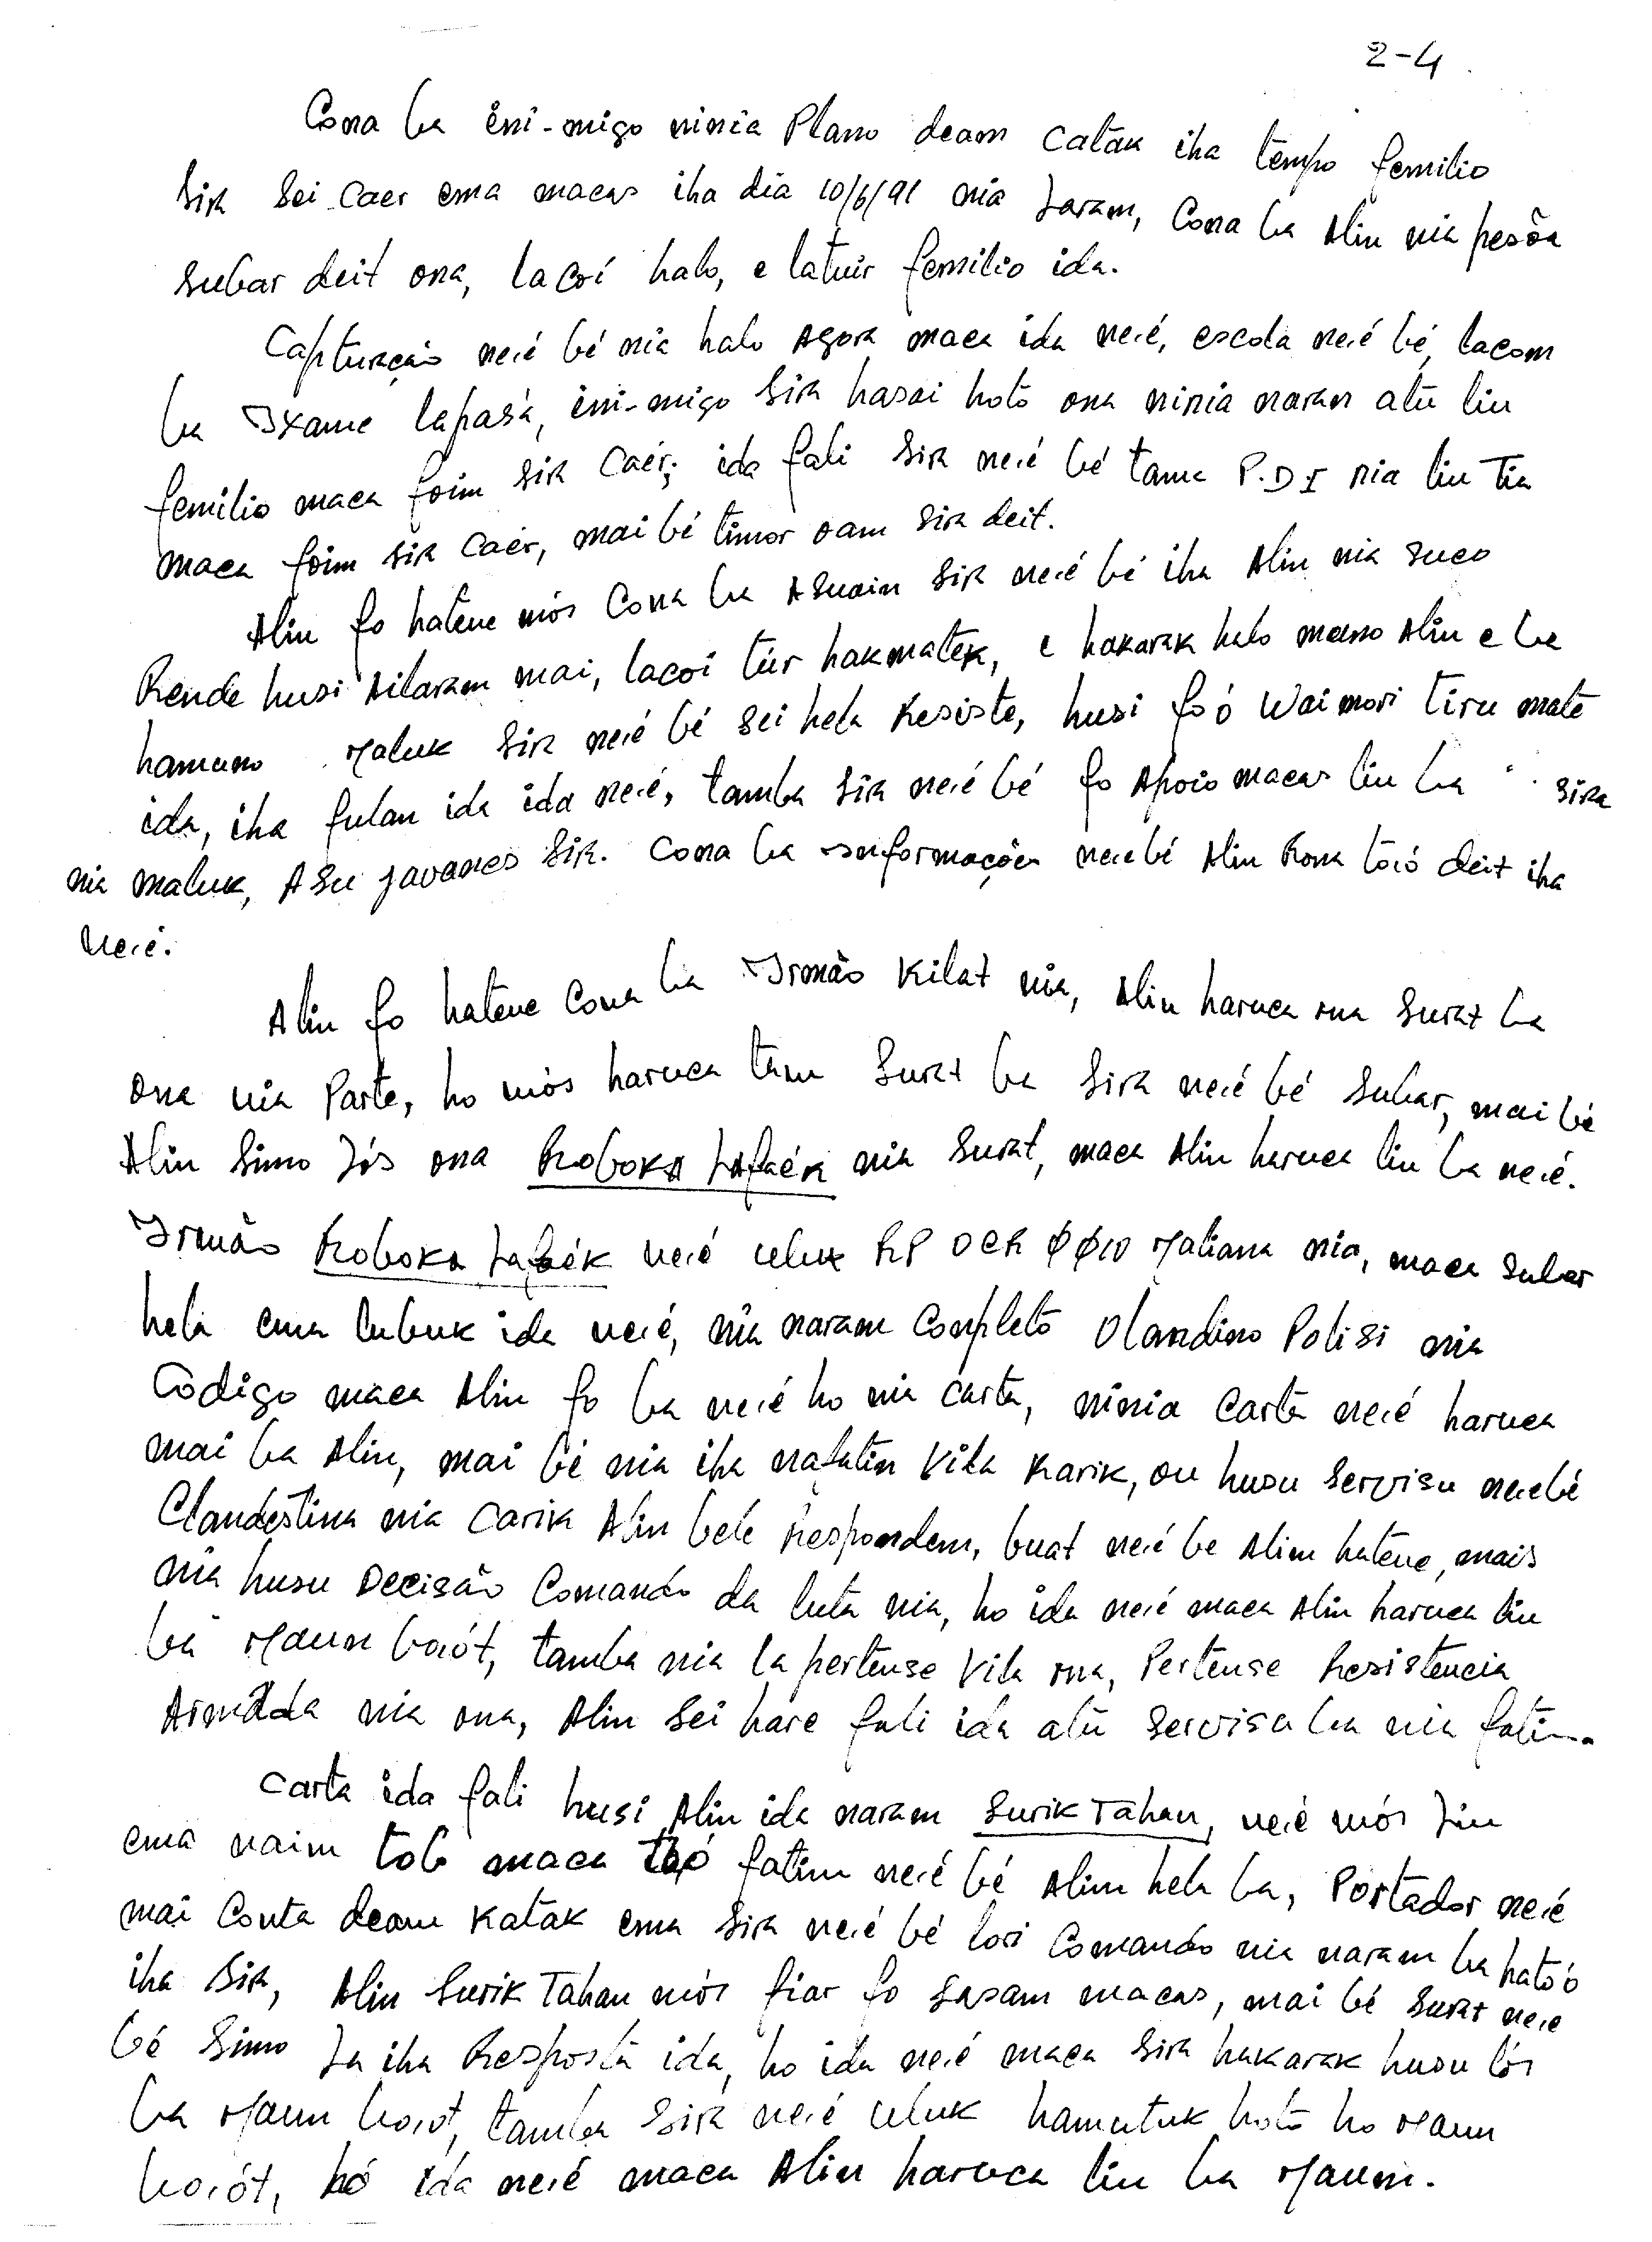 2-4
Cona ba ini-migo ninia Plano deam Catak iha tempo femilio
Sir Sei Caer ema macas iha dia 10/6/91 nia Laram, Cona ba Alin nia pesõa
Subar deit ona, lacoí halo, e latuir femilio ida.
Capturação neié bé nia halo Agora maca ida neié, escola neié bé, lacom
ba Ixame lapasá, ini-migo Sir hasai hotó ona ninia naran atu liu
femilio maca foim Sir Caér; ida fali Sir neié bé tama P.D.I nia liu Tia
maca foim Sir Caér, mai bé timor oam Sir deit.
Alin fo hatene mós Cona ba Asuain Sir neié bé iha Alin nia Suco
Rende husi Ailaram mai, lacoi túr hakmaték, e hakarak halo mano Alin e ba
hamuno Maluk Sir neié bé Sei hela Resiste, husi foó Waimori Tiru mate
ida, iha fulan ida ida neié, tamba Sir neié bé fo Apoio macas liu ba Sira
nia maluk, Asu javanes Sir. Cona ba informações neiebé Alin Rona tóió deit iha
neié.
Alin fo hatene Cona ba Irmão Kilat nia, Alin haruca ona Surat ba
ona nia Parte, ho mós haruca tam Surat ba Sira neié bé Subar, mai bé
Alin Simo Lós ona Roboka Lafaék nia Surat, maca Alin haruca liu ba neié.
Irmão Roboka Lafaék neié uluk RP OCR ØØ10 Maliana nia, maca Subar
hela ema lubuk ida neié, nia naram Completo Olandino Polisi nia
Código maca Alin fo ba neié ho nia carta, ninia Carta neié haruca
mai ba Alin, mai bé nia iha nafatin Vila Karik, ou husu Servisu neiebé
Clandestina nia Carik Alin bele Respondem, buat neié be Alin hatene, mais
nia husu Decisão Comando da luta nia, ho ida neié maca Alin haruca liu
ba Maun boiót, tamba nia la pertense Vila ona, Pertense Resistencia
Armada nia ona, Alin Sei hare fali ida atu Servisu ba nia fatin.
Carta ida fali husi Alin ida naram Surik Tahan, neié mós Liu
ema naim tolo maca tóó fatim neié bé Alin hela ba, Portador neié
mai Conta deam Katak ema Sira neié bé lori Comando nia naram ba hatóó
iha Sir, Alin Surik Tahan mós fiar fo Sasam macas, mai bé Surat neie
bé Simo La iha Resposta ida, ho ida neié maca Sira hakarak husu lós
ba Maun boiót, tamba Sira neié uluk hamutuk hotó ho Maun
boiót, hó ida neié maca Alin haruca liu ba Maun.